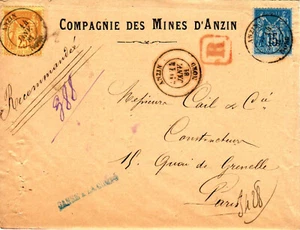 COMPAGNIE DES MINES D'ANZIN
R
15
25
Recommandée
388
ANZIN
NORD
Messieurs Cail & Cie
Constructeur
15 Quai de Grenelle
Paris